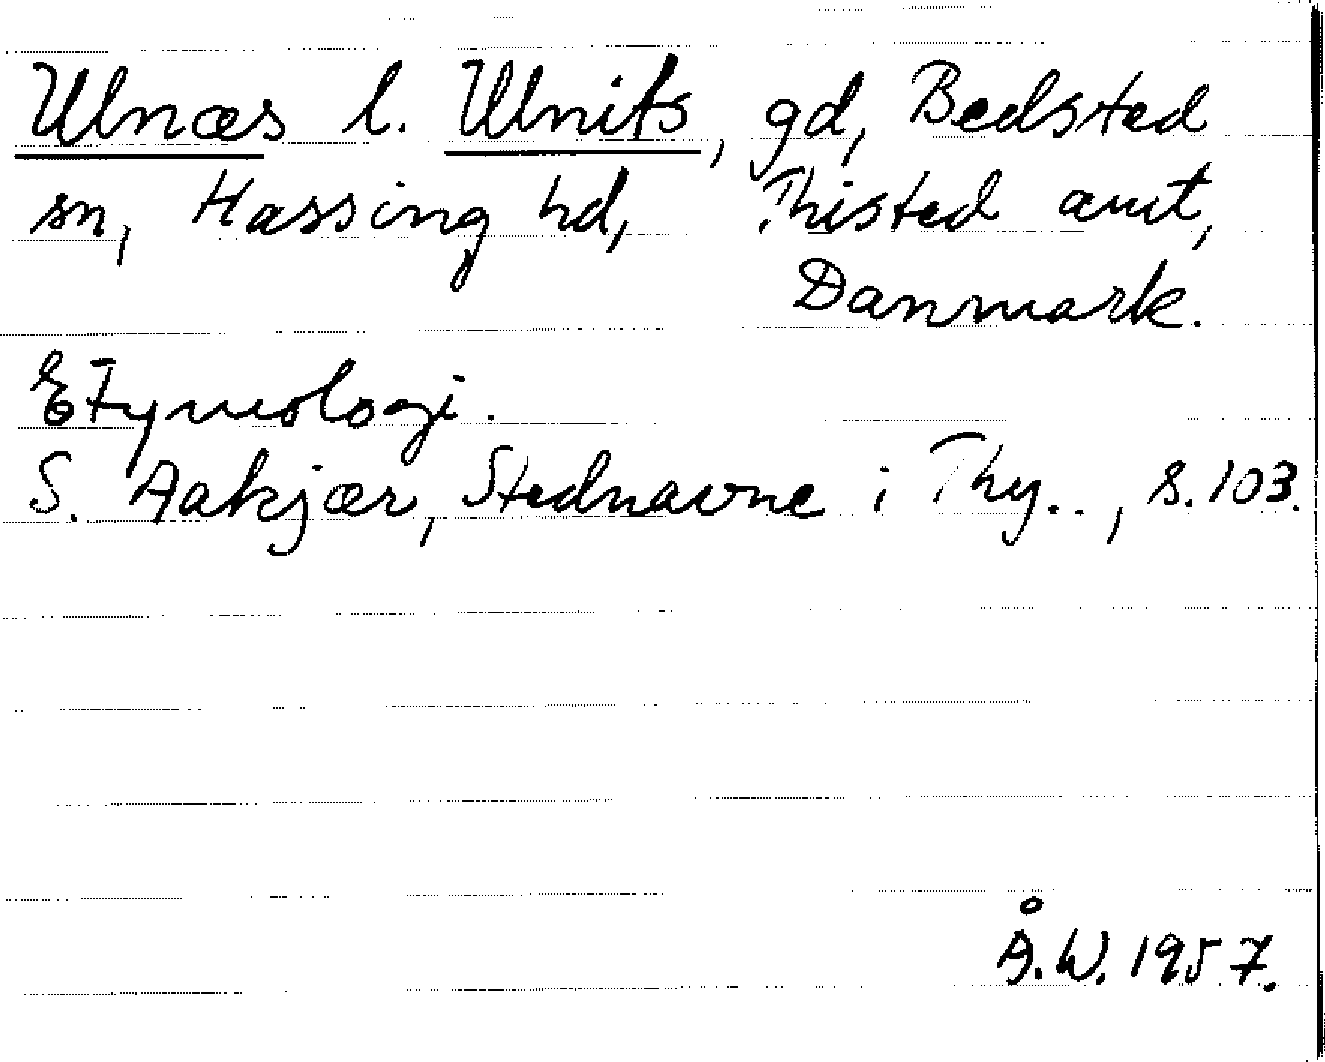 Ulnæs l. Ulnits, gd, Bedsted
sn, Hassing hd, Thisted amt,
Danmark.
Etymologi.
S. Aakjær, Stednavne i Thy.., s. 103.
Å.W. 1957.